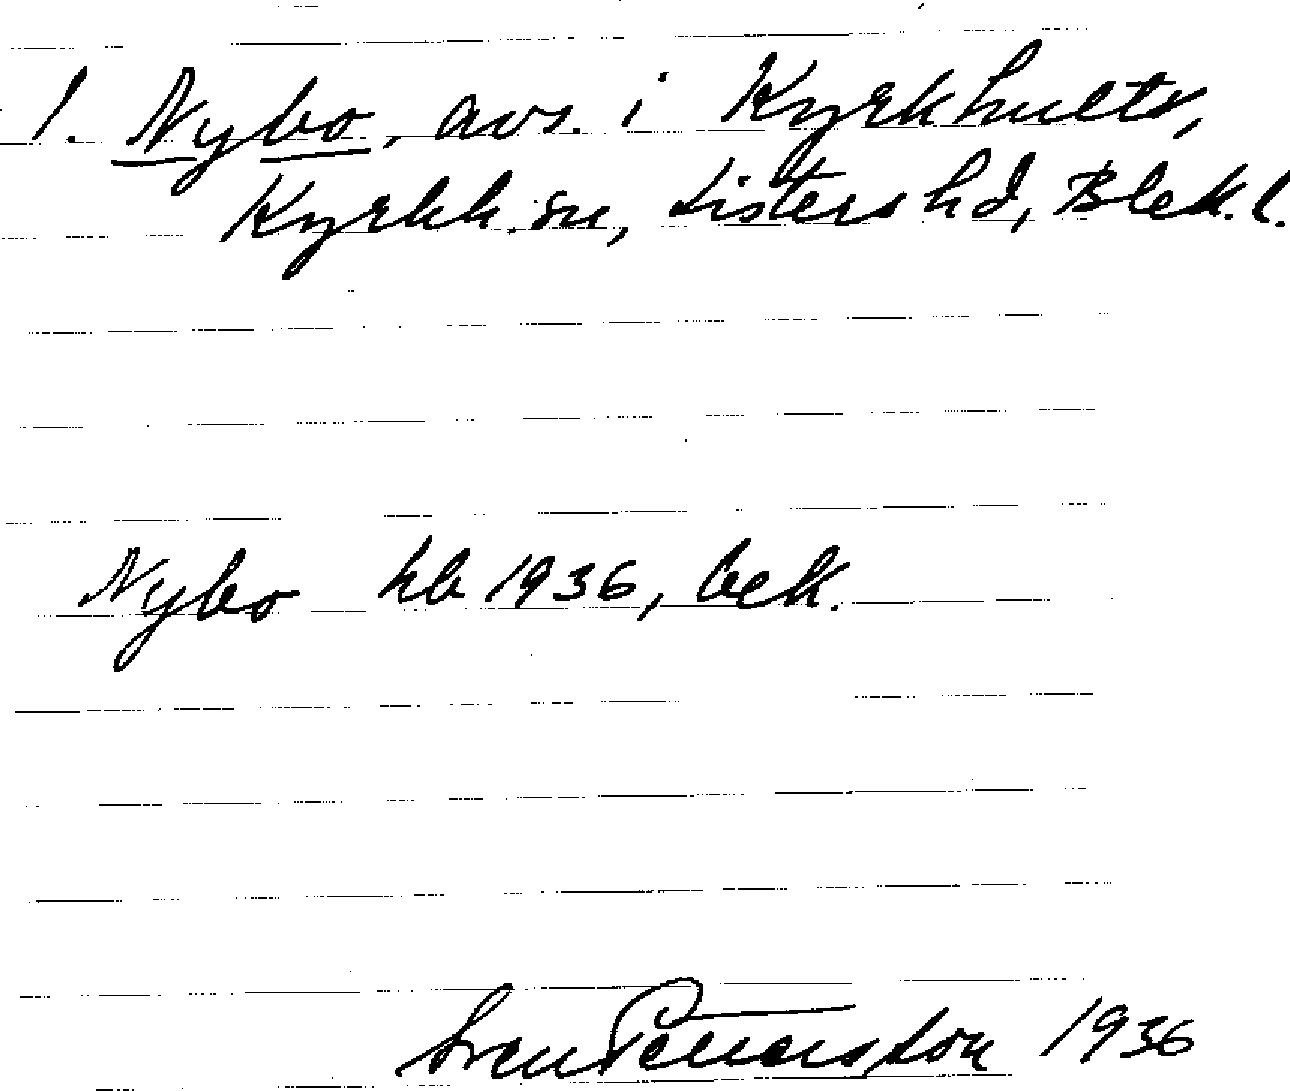 1. Nybo, avs. i Kyrkhult,
Kyrkh. sn, Listers hd, Blek. l.
Nybo kb 1936, bek.
Sven Petterson 1936